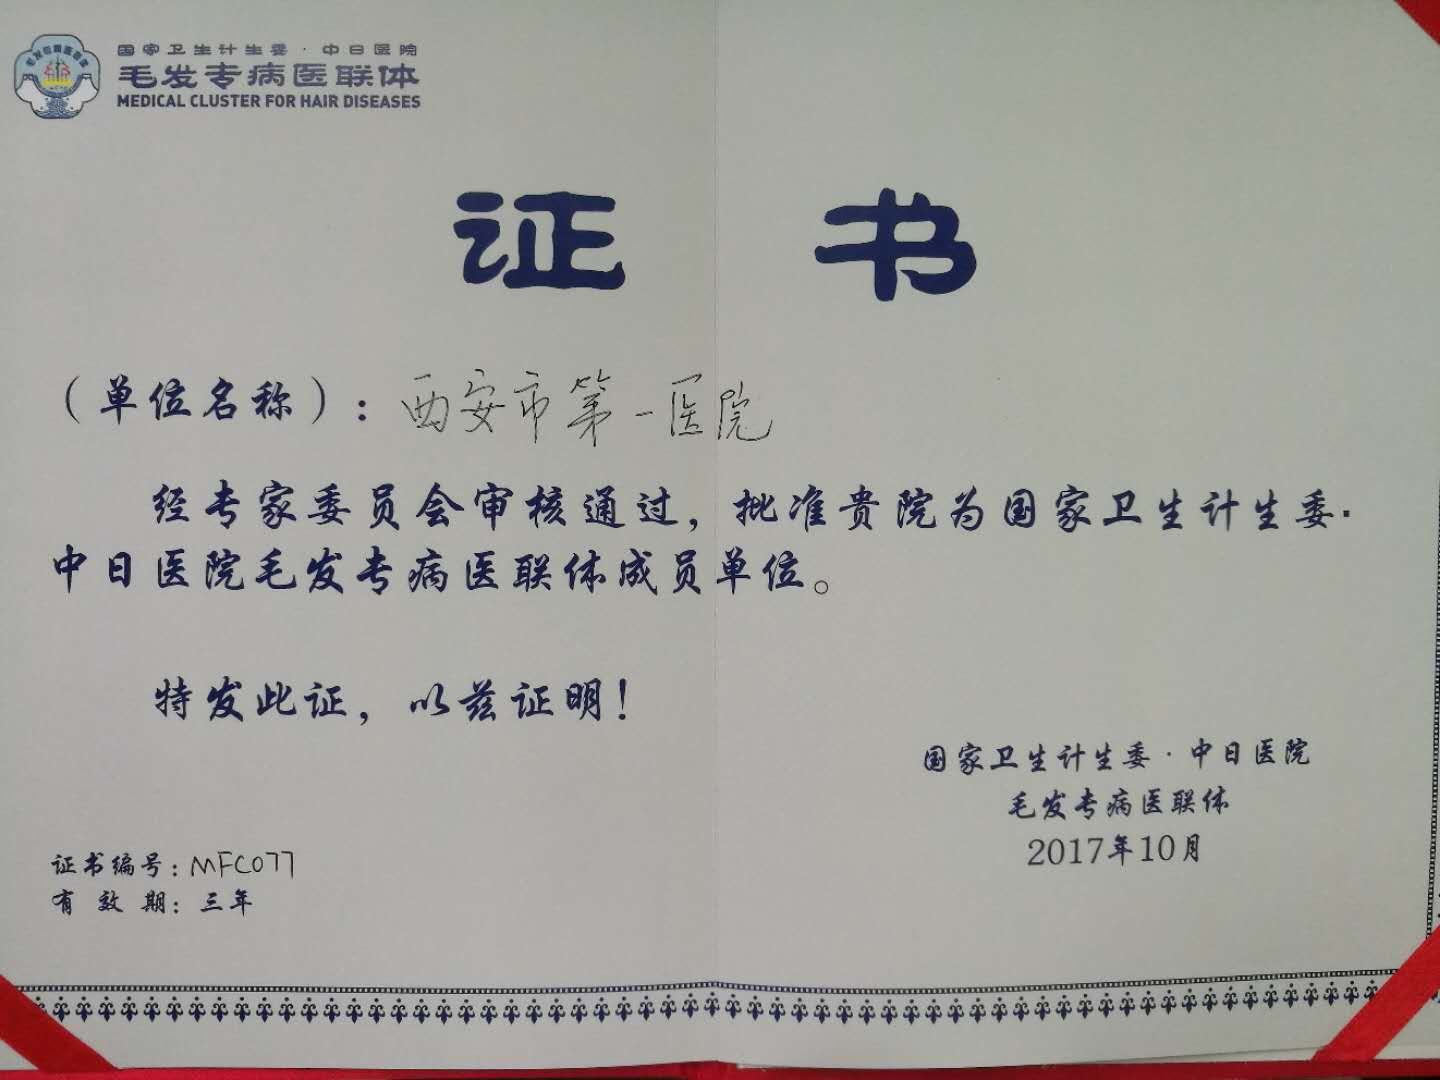 国家卫生计生委·中日医院
毛发专病医联体
MEDICAL CLUSTER FOR HAIR DISEASES
证书
（单位名称）：西安市第一医院
经专家委员会审核通过，批准贵院为国家卫生计生委·
中日医院毛发专病医联体成员单位。
特发此证，以兹证明！
国家卫生计生委·中日医院
毛发专病医联体
2017年10月
证书编号：MFC077
有效期：三年